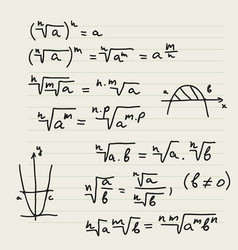 (ⁿ√a)ⁿ = a
(ⁿ√a)ᵐ = ⁿ√aᵐ = a^(m/n)
ⁿ√(ᵐ√a) = ⁿ·ᵐ√a
a b x
ⁿ√aᵐ = ⁿ·ᵖ√aᵐ·ᵖ
ⁿ√(a.b) = ⁿ√a . ⁿ√b
y
a c
ⁿ√(a/b) = ⁿ√a / ⁿ√b, (b ≠ 0)
x
ⁿ√a ᵐ√b = ⁿᵐ√(aᵐbⁿ)